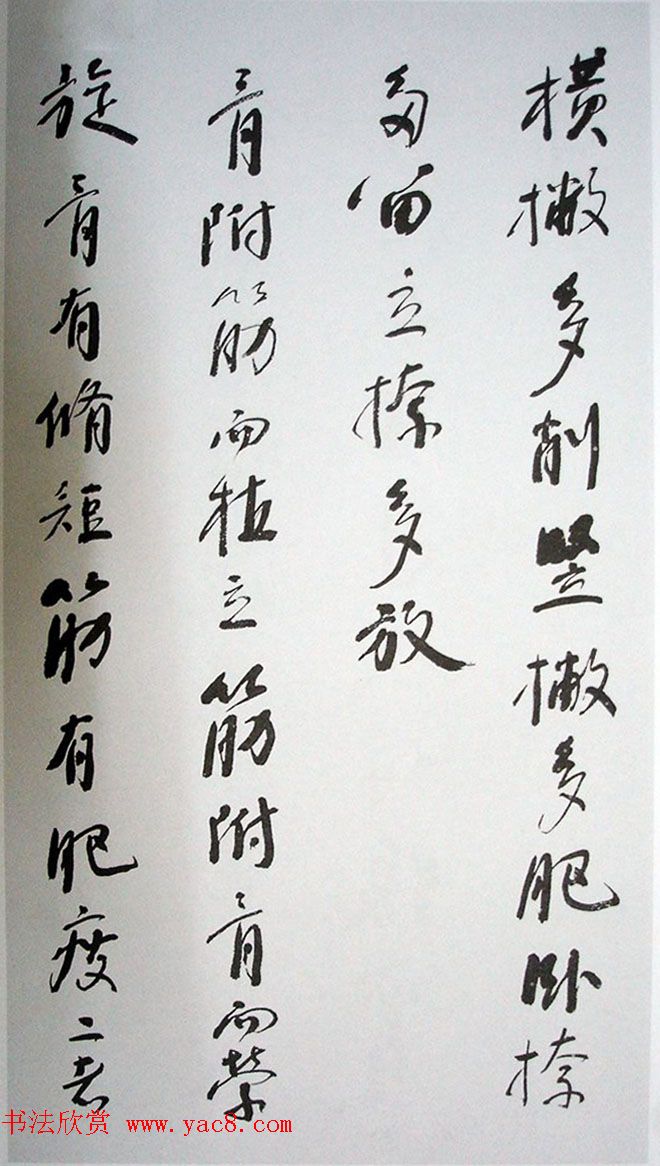 横撇多削竖撇多肥卧捺
多留立捺多放
骨附筋而植立筋附骨而萦
旋骨有修短筋有肥瘦二者
书法欣赏 www.yac8.com